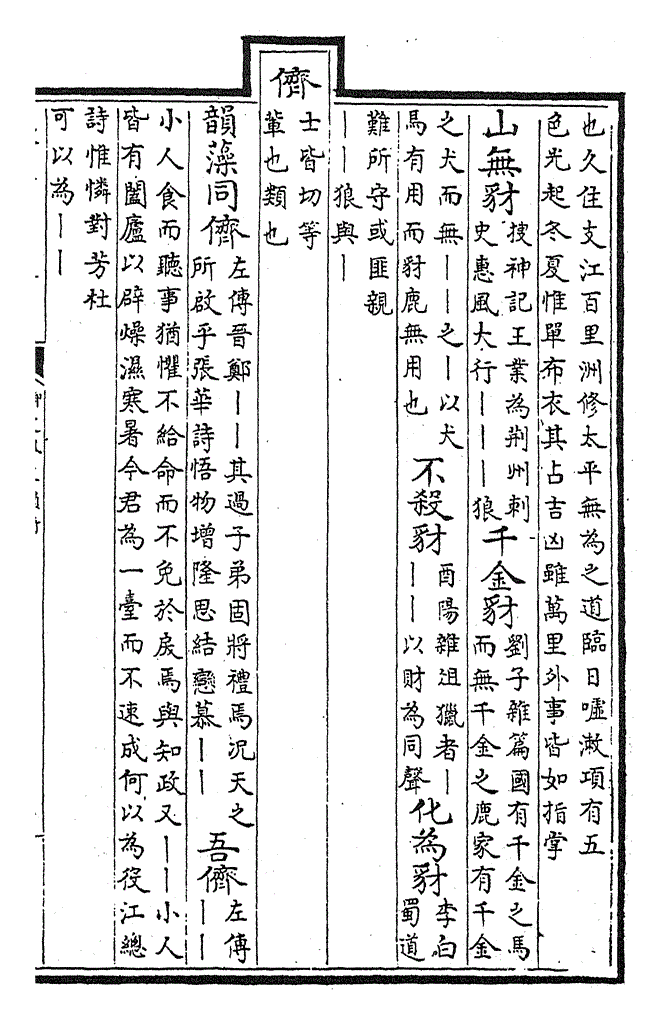 也久住支江百里洲修太平無為之道臨日噓漱項有五
色光起冬夏惟單布衣其占吉凶雖萬里外事皆如指掌
山無豺 搜神記王業為荆州刺
史惠風大行｜｜｜狼
千金豺 劉子雜篇國有千金之馬
而無千金之鹿家有千金
之犬而無｜｜之｜以犬
馬有用而豺鹿無用也
不殺豺 酉陽雜俎獵者｜
｜｜以財為同聲
化為豺 李白
蜀道
難所守或匪親
｜｜狼與｜
儕
士皆切等
輩也類也
韻藻同儕 左傳晉鄭｜｜其過子弟固將禮焉況天之
所啟乎張華詩悟物增隆思結戀慕｜｜
吾儕 左傳
｜｜
小人食而聽事猶懼不給命而不免於戾焉與知政又｜｜小人
皆有闔廬以辟燥濕寒暑今君為一臺而不速成何以為役江總
詩惟憐對芳杜
可以為｜｜